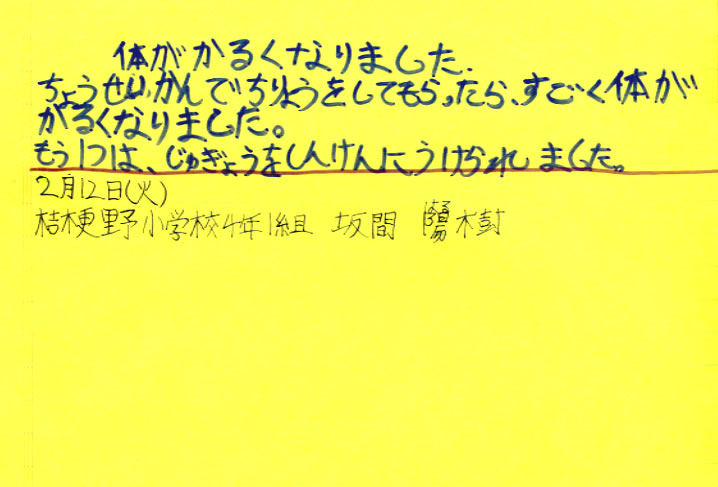 体がかるくなりました.
ちょうせいかんでちりょうをしてもらったら、すごく体が
かるくなりました。
もう1つは、じゅぎょうをしんけんにうけられました。
2月12日(火)
桔梗野小学校4年1組 坂間 樹